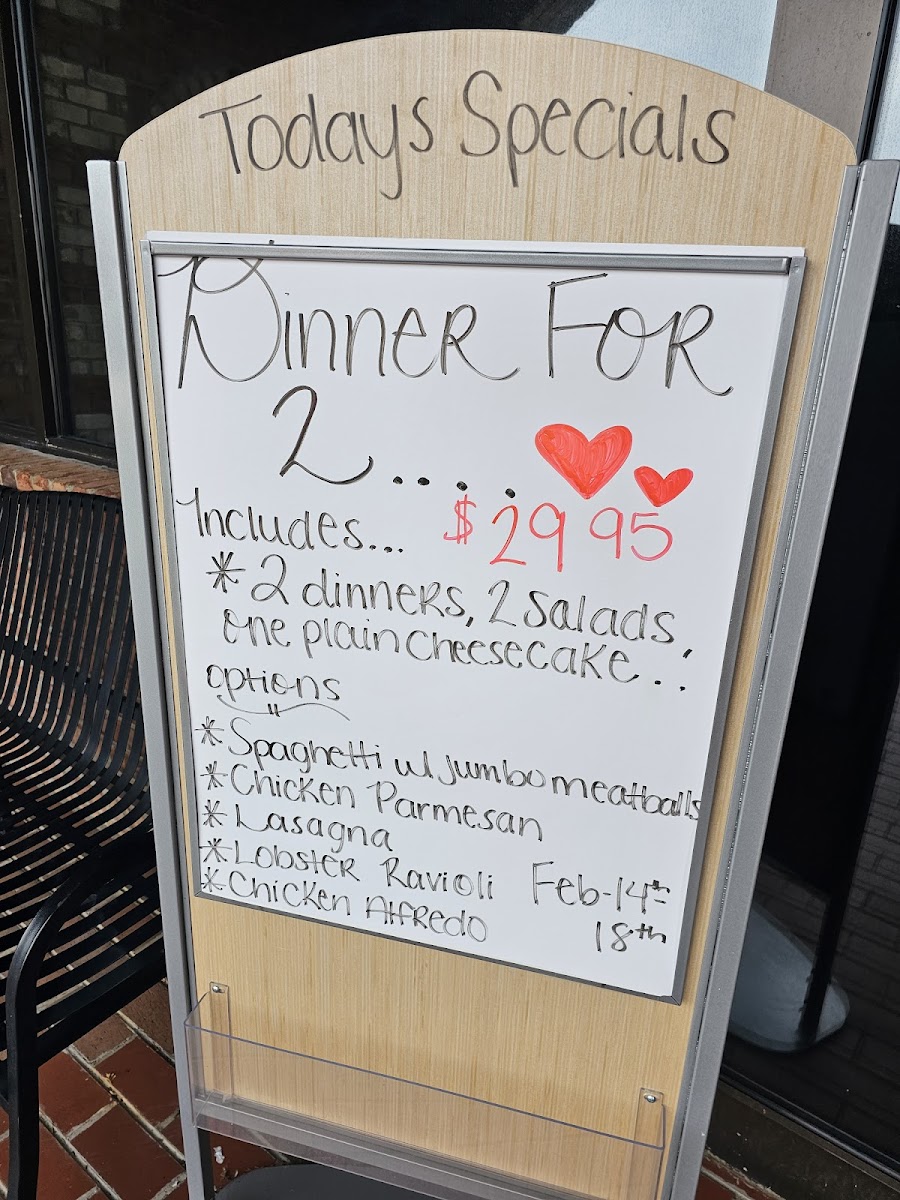 Todays Specials
Dinner For
2.....
Includes... $29 95
* 2 dinners, 2 salads
one plain cheesecake..!
options
* Spaghetti w/ jumbo meatballs
* Chicken Parmesan
* Lasagna
* Lobster Ravioli Feb-14th-
* Chicken Alfredo 18th